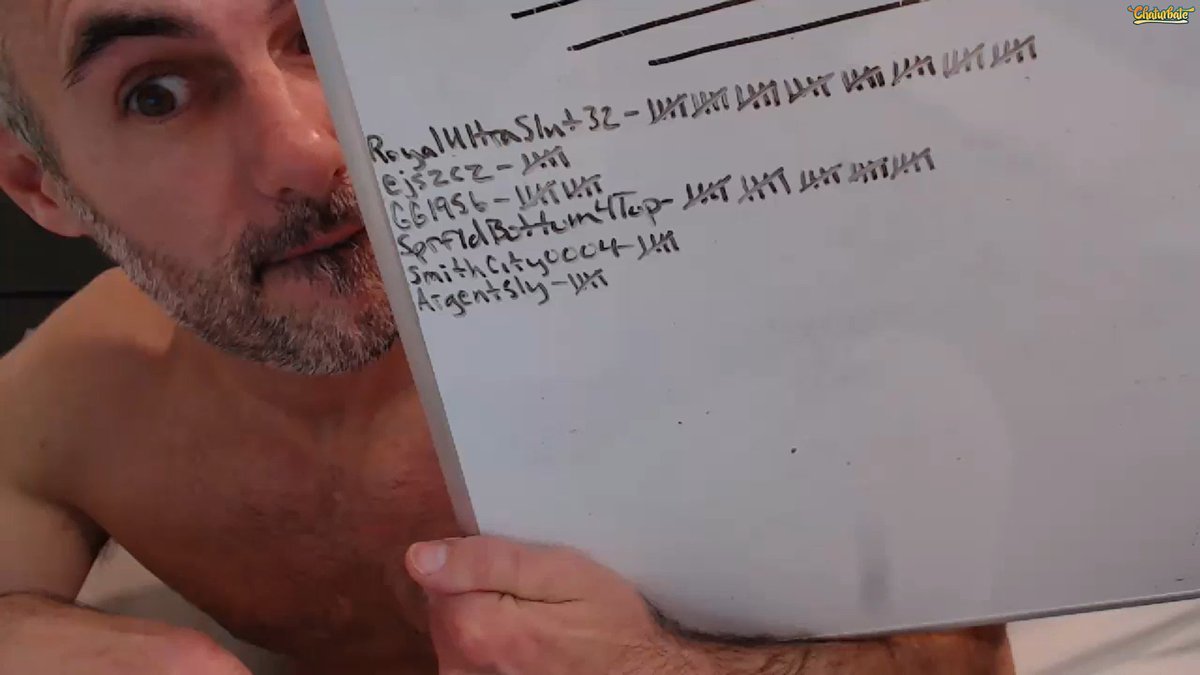 Chaturbate
RoyalUltraSlut32 -
ejszcz -
GG1956 -
SprfldBottom4Top -
SmithCity0004 -
ArgentSly -